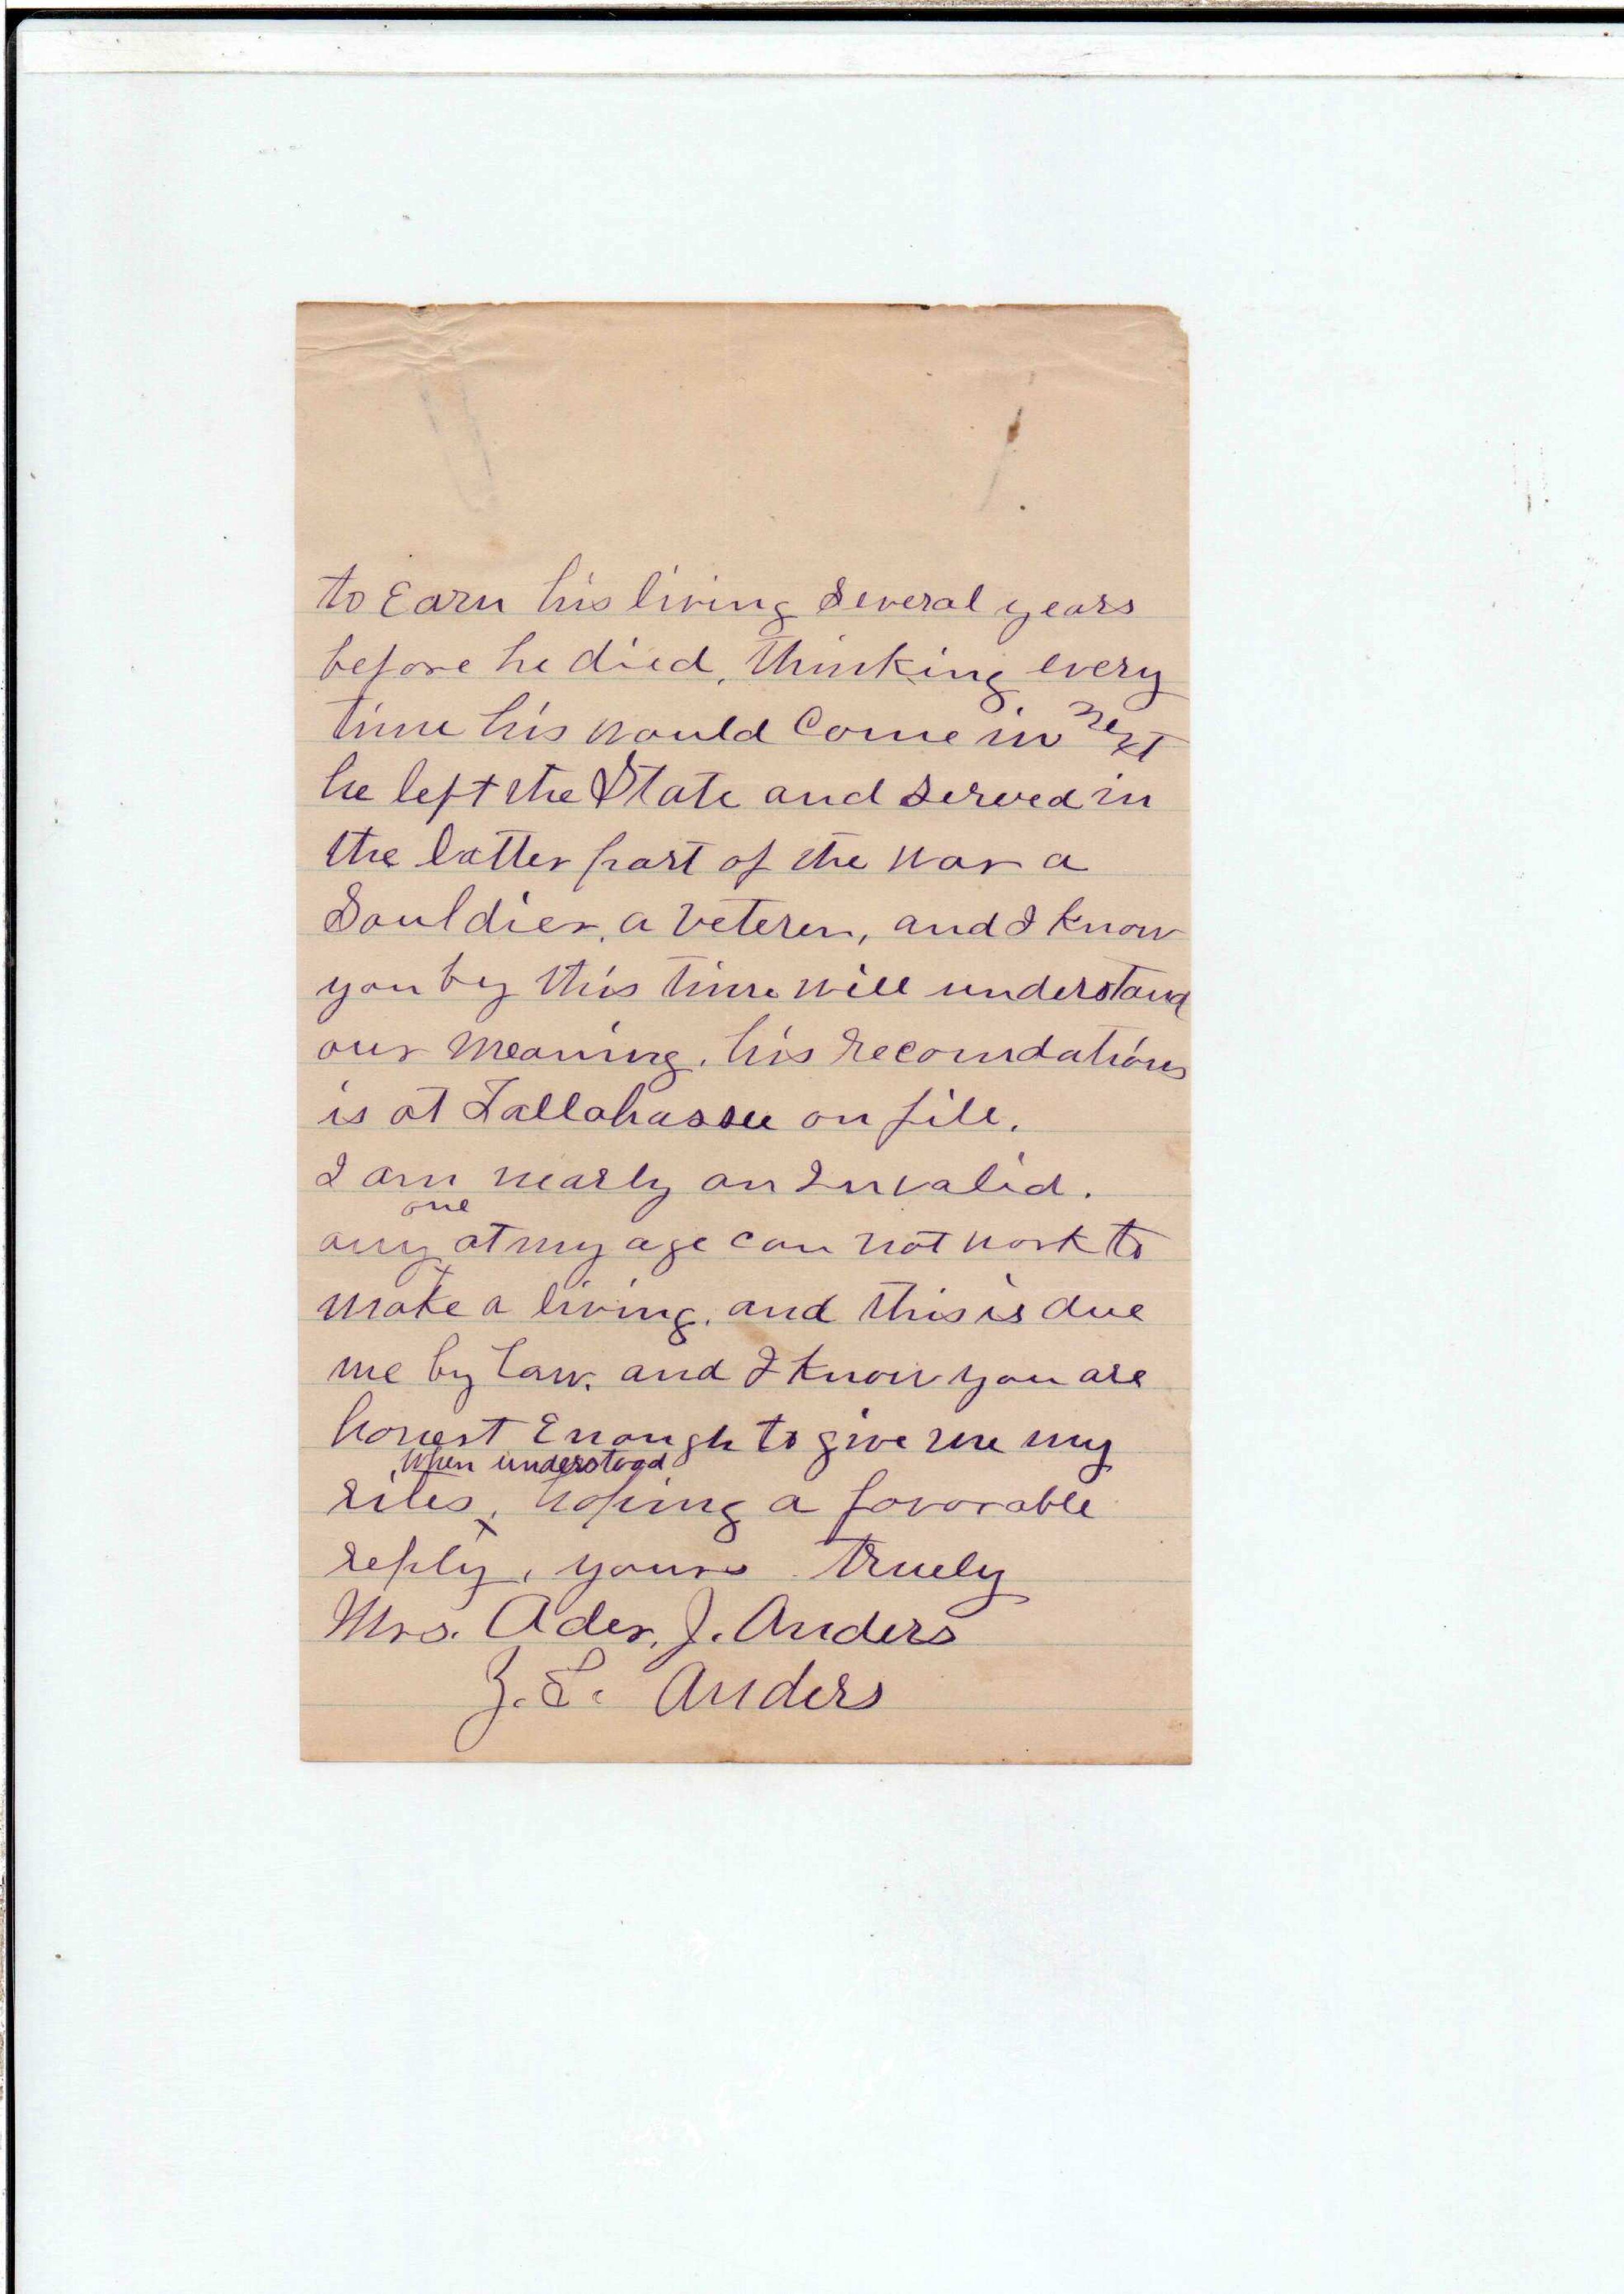 to Earn his living Several years
before he died, thinking every
time his would Come in next
he left the State and Served in
the latter part of the war a
Souldier, a veteren, and I know
you by this time will understand
our meaning. his recomdations
is at Tallahassee on file.
I am nearly an Invalid.
any one at my age can not work to
make a living. and this is due
me by Law. and I know you are
honest Enough to give me my
rites, when understood hoping a favorable
reply, yours truely
Mrs. Ader. J. Anders
Z. E. Anders